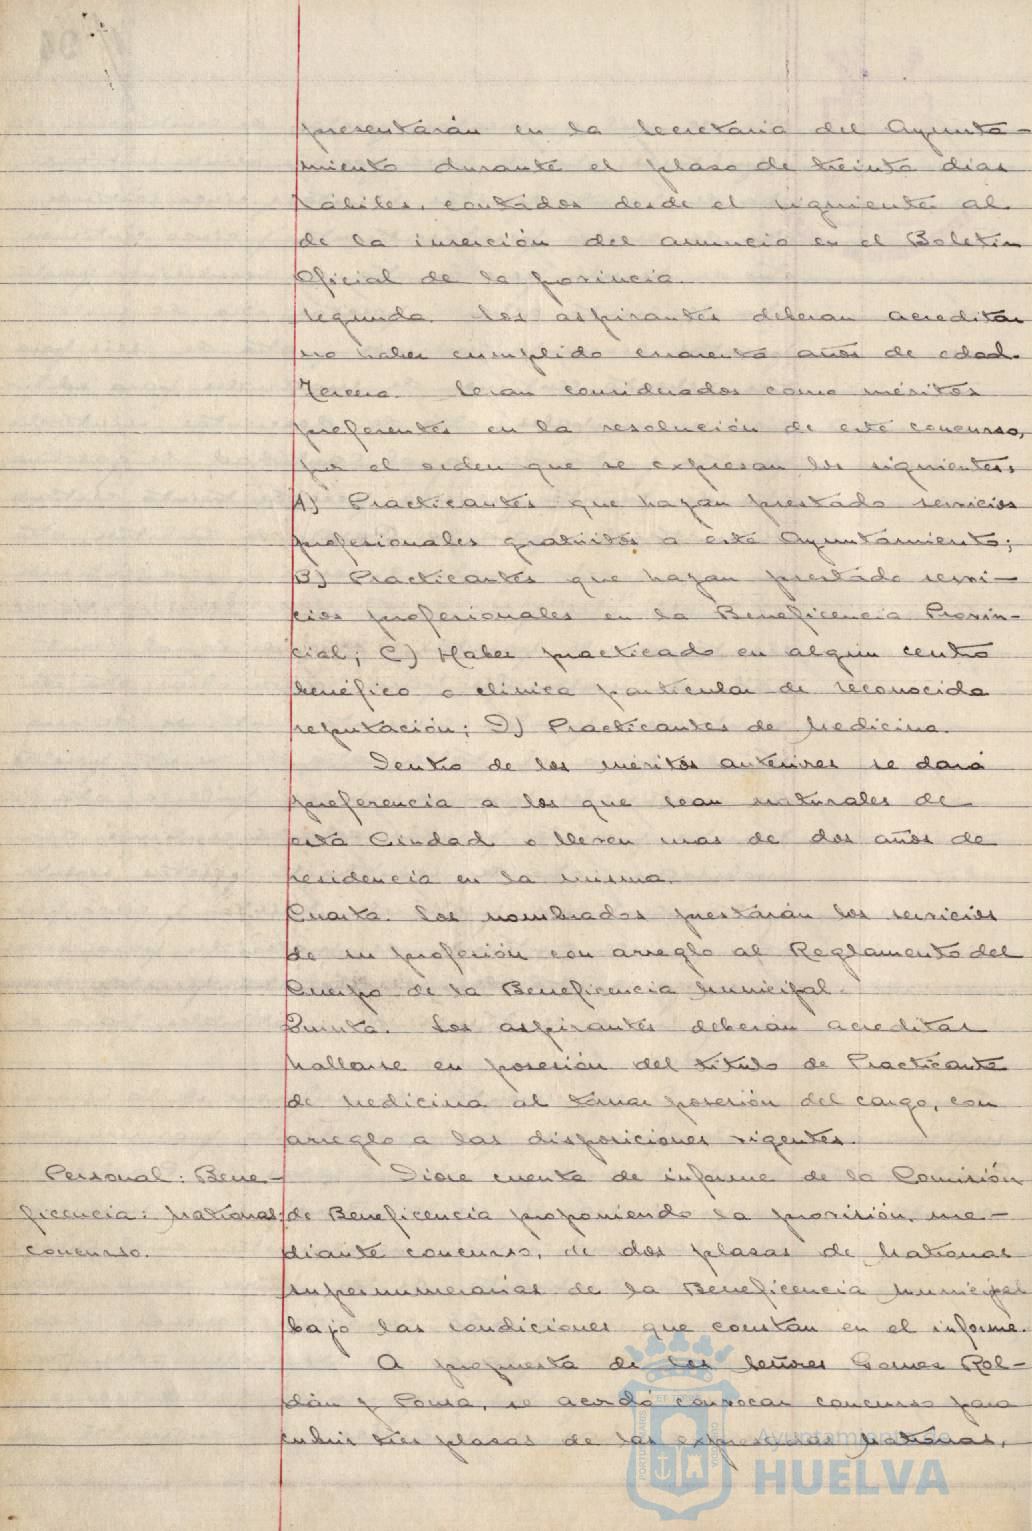 presentarán en la Secretaria del Ayunta-
miento durante el plaso de treinta dias
hábiles, contados desde el siguiente al
de la inserción del anuncio en el Boletin
Oficial de la provincia.
Segunda. Los aspirantes deberan acreditar
no haber cumplido cuarenta años de edad.
Tercera. Seran considerados como méritos
preferentes en la resolución de este concurso,
por el orden que se expresan los siguientes:
A) Practicantes que hayan prestado servicios
profesionales gratuitos a este Ayuntamiento;
B) Practicantes que hayan prestado servi-
cios profesionales en la Beneficencia Provin-
cial; C) Haber practicado en algún centro
benéfico o clinica particular de reconocida
reputación; D) Practicantes de Medicina.
Dentro de los méritos anteriores se dará
preferencia a los que sean naturales de
esta Ciudad o lleven mas de dos años de
residencia en la misma.
Cuarta. Los nombrados prestarán los servicios
de su profesión con arreglo al Reglamento del
Cuerpo de la Beneficencia Municipal.
Quinta. Los aspirantes deberan acreditar
hallarse en posesión del titulo de Practicante
de Medicina al tomar posesión del cargo, con
arreglo a las disposiciones vigentes.
Personal: Bene-
ficencia: Matronas
concurso.
Diose cuenta de informe de la Comisión
de Beneficencia proponiendo la provisión, me-
diante concurso, de dos plasas de Matronas
supernumerarias de la Beneficencia Municipal
bajo las condiciones que constan en el informe.
A propuesta de los Señores Gomes Rol-
dán y Ponsa, se acordó convocar concurso para
cubrir tres plasas de las expresadas Matronas,
Ayuntamiento de
HUELVA